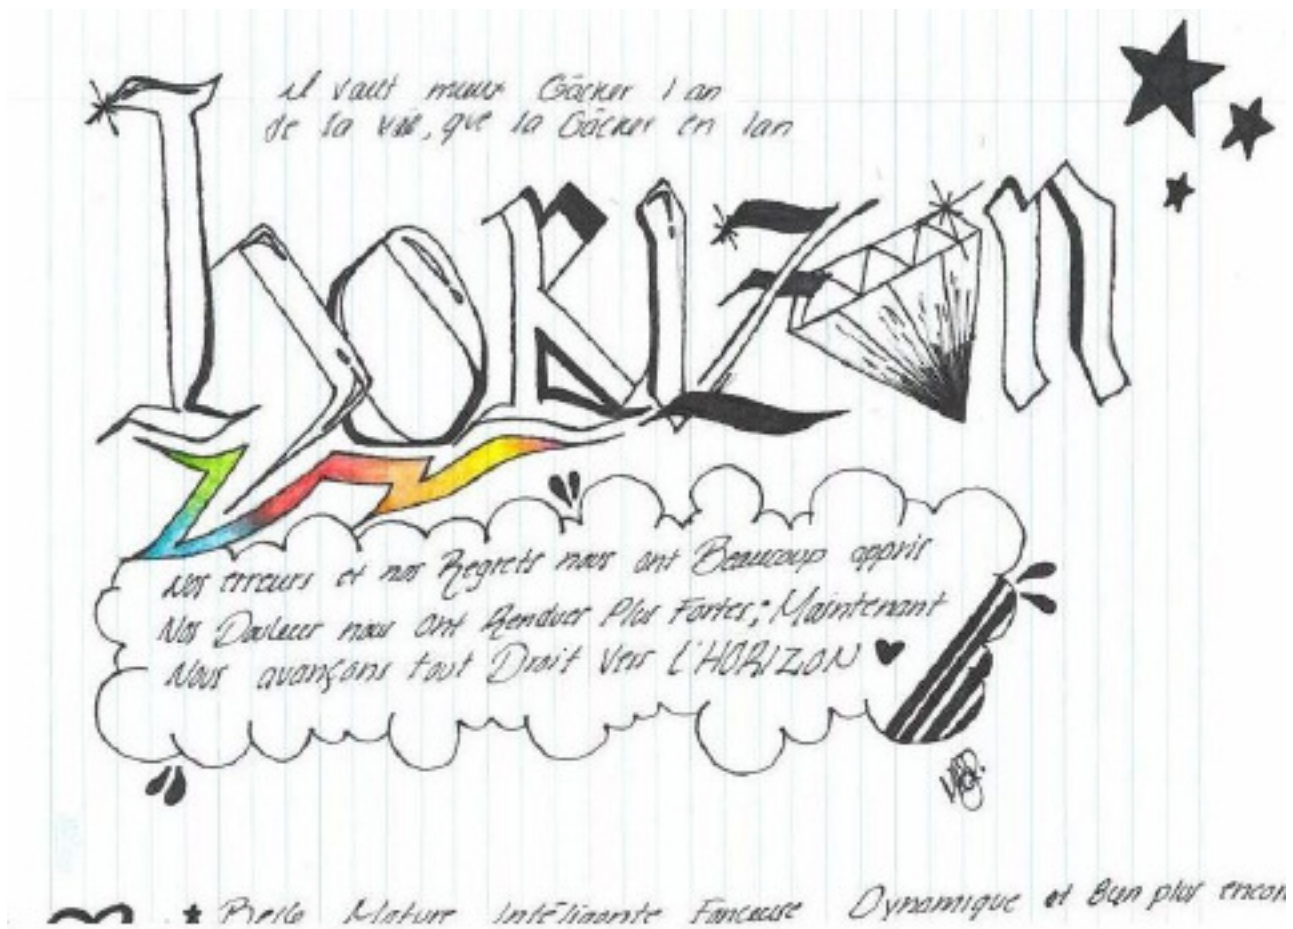 il vaut mieux Gâcher 1 an
de sa vie, que la Gâcher en 1an
horizon
Nos erreurs et nos Regrets nous ont Beaucoup appris
Nos Douleur nous ont Rendues Plus Fortes; Maintenant
Nous avançons tout Droit Vers L'HORIZON
Mature Intéligante Fonceuse Dynamique et Bien plus encor